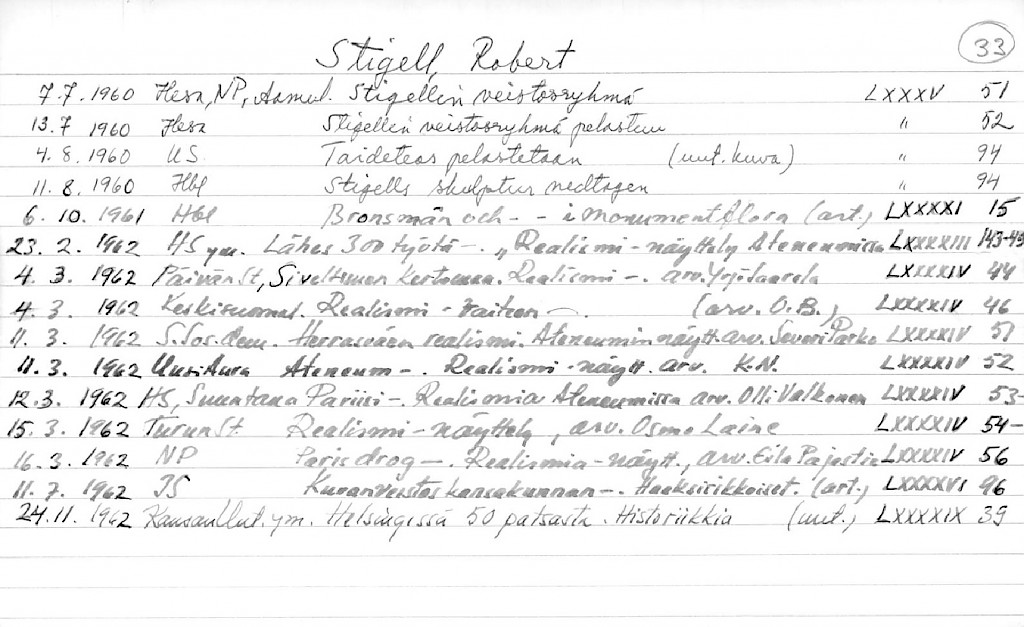 33
Stigell, Robert
7.7.1960 Hesa, NP, Aamul. Stigellin veistosryhmä LXXXV 51
13.7 1960 Hesa Stigellin veistosryhmä pelastuu " 52
4.8.1960 US. Taideteos pelastetaan (uut. kuva) " 94
11.8.1960 Hbl Stigells skulptur nedtagen " 94
6.10.1961 Hbl Bronsmän och - - i monumentflora (art.) LXXXXI 15
23.2.1962 HS ym. Lähes 300 työtä -. „Realismi-näyttely Ateneumissa LXXXXIII 143-45
4.3.1962 Päivän St, Siveltimen Realismi -. arv. Yrjö Saarela LXXXXIV 44
4.3.1962 Keskisuomal. Realismi - taiteen -. (arv. O.B.) LXXXXIV 46
11.3.1962 S.Sos.dem. Herrasväen realismi. Ateneumin näytt. arv. Severi Parko LXXXXIV 51
11.3.1962 Uusi Aura Ateneum -. Realismi-näytt. arv. K.N. LXXXXIV 52
12.3.1962 HS, Suuntana Pariisi -. Realismia Ateneumissa arv. Olli Valkonen LXXXXIV 53-
15.3.1962 Turun St. Realismi-näyttely, arv. Osmo Laine LXXXXIV 54-
16.3.1962 NP Paris drog -. Realismia-näytt., arv. Eila Pajastie LXXXXIV 56
11.7.1962 IS Kuvanveistos kansakunnan -. Haaksirikkoiset. (art.) LXXXXVI 96
24.11.1962 Kansan Uut. ym. Helsingissä 50 patsasta. Historiikkia (uut.) LXXXXIX 39